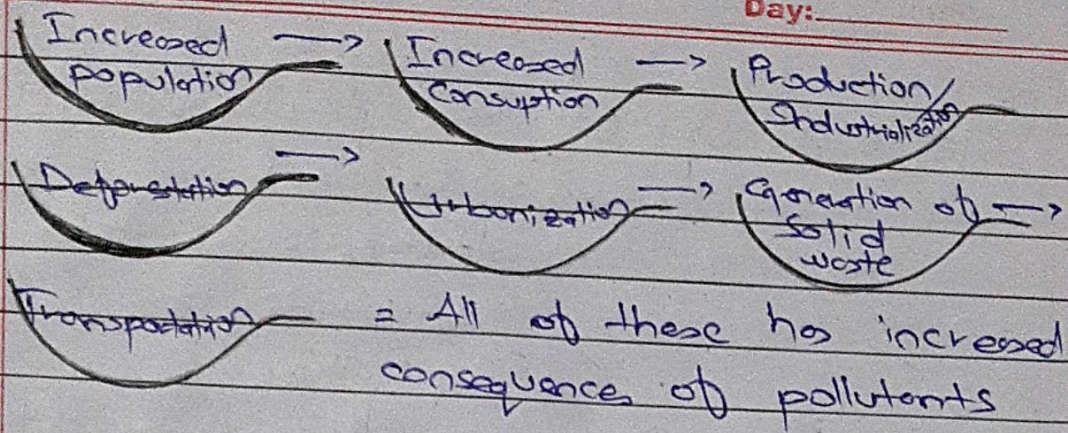 Day:
Increased → Increased → Production/
population Consuption Industrialization
Deforestation → Urbanization → Generation of →
Solid
waste
Transportation = All of these has increased
consequence of pollutants